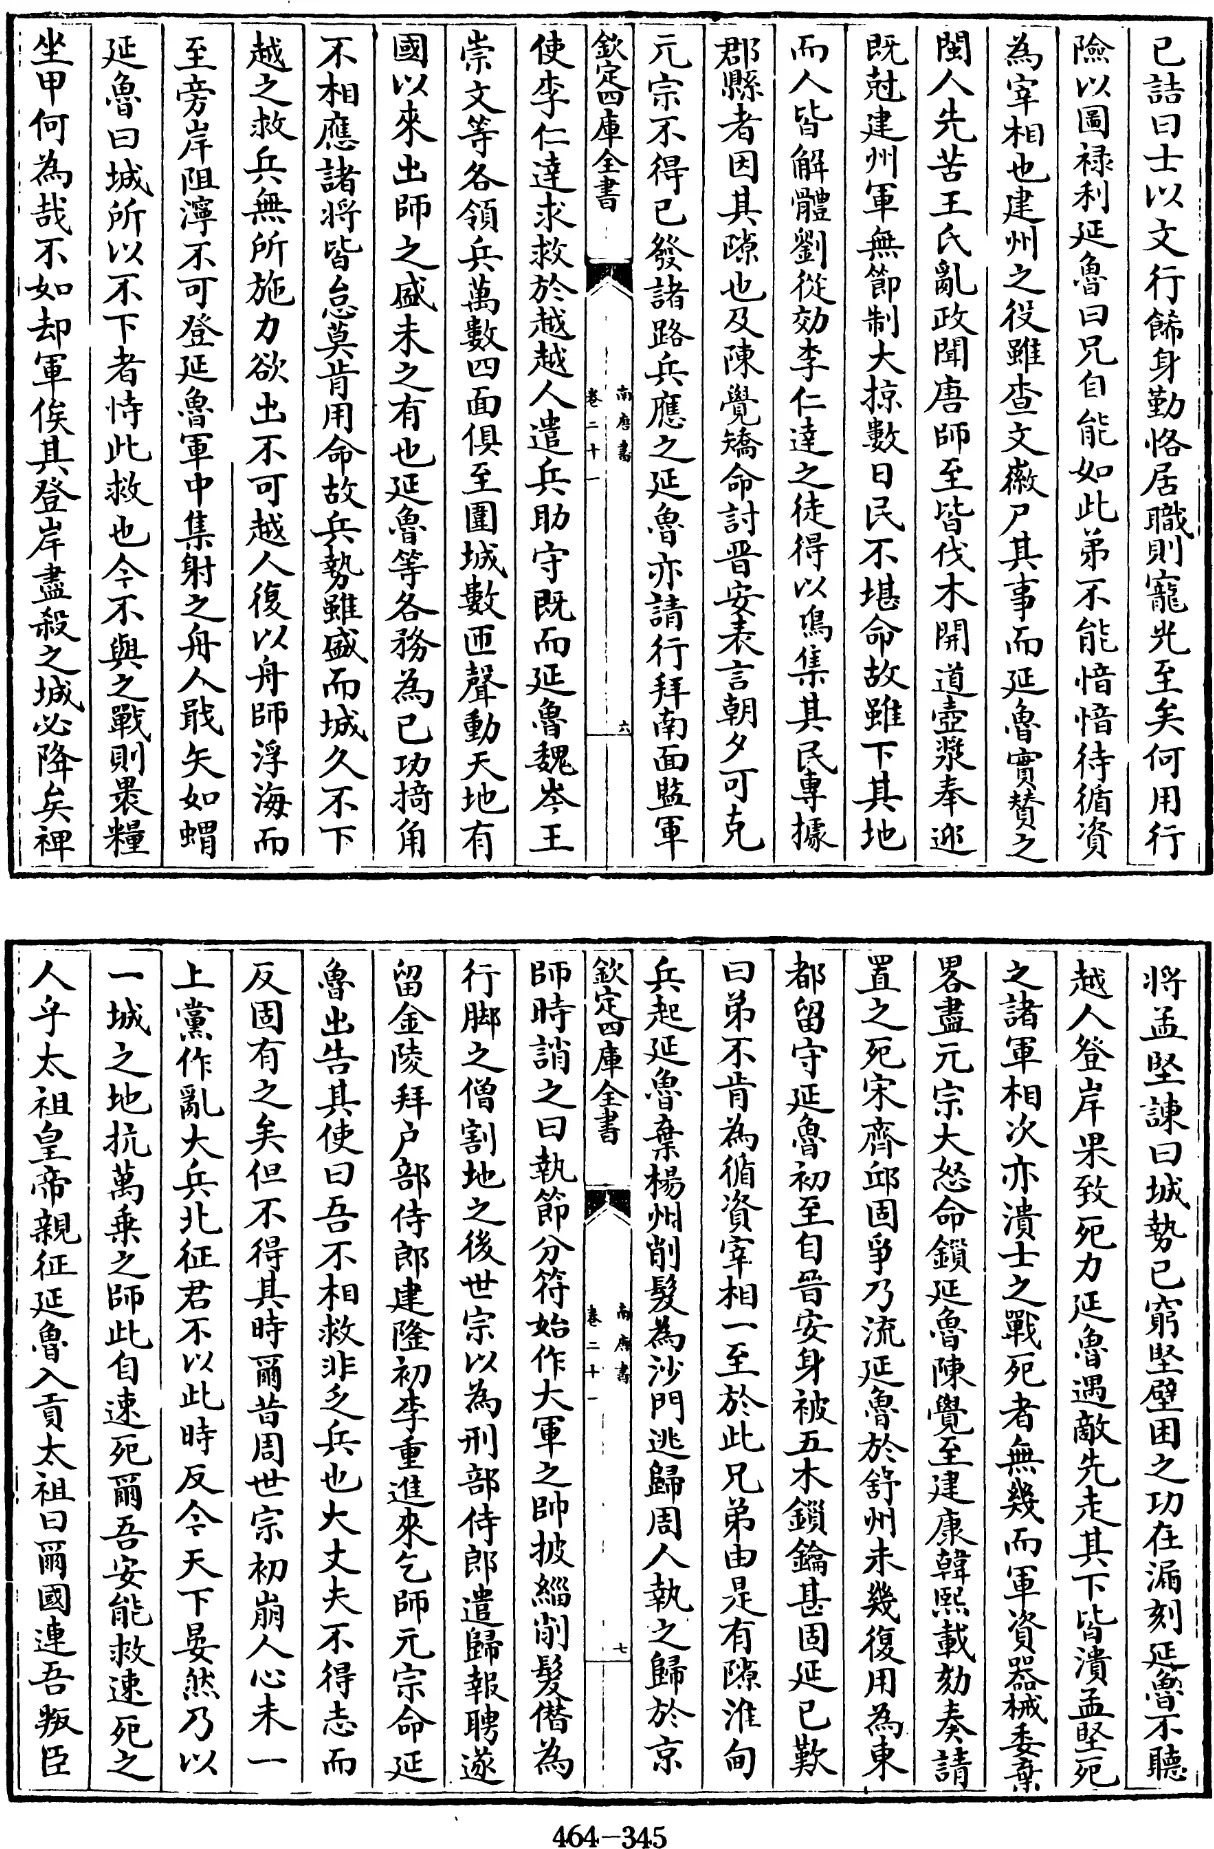 已詰曰士以文行餙身勤恪居職則寵光至矣何用行
險以圖禄利延魯曰兄自能如此弟不能愔愔待循資
為宰相也建州之役雖查文徽尸其事而延魯實賛之
閩人先苦王氏亂政聞唐師至皆伐木開道壺漿奉迎
既尅建州軍無節制大掠數日民不堪命故雖下其地
而人皆解體劉從効李仁達之徒得以鳩集其民專據
郡縣者因其隙也及陳覺矯命討晋安表言朝夕可克
元宗不得已發諸路兵應之延魯亦請行拜南面監軍
欽定四庫全書
南唐書
卷二十一
六
使李仁達求救於越越人遣兵助守既而延魯魏岑王
崇文等各領兵萬數四面俱至圍城數匝聲動天地有
國以來出師之盛未之有也延魯等各務為已功掎角
不相應諸將皆怠莫肯用命故兵勢雖盛而城久不下
越之救兵無所施力欲出不可越人復以舟師浮海而
至旁岸阻濘不可登延魯軍中集射之舟人戢矢如蝟
延魯曰城所以不下者恃此救也今不與之戰則褁糧
坐甲何為哉不如却軍俟其登岸盡殺之城必降矣裨
將孟堅諫曰城勢已窮堅壁困之功在漏刻延魯不聽
越人登岸果致死力延魯遇敵先走其下皆潰孟堅死
之諸軍相次亦潰士之戰死者無幾而軍資器械委棄
畧盡元宗大怒命鎖延魯陳覺至建康韓熙載劾奏請
置之死宋齊邱固爭乃流延魯於舒州未幾復用為東
都留守延魯初至自晋安身被五木鎖鑰甚固延已歎
曰弟不肯為循資宰相一至於此兄弟由是有隙淮甸
兵起延魯棄楊州削髮為沙門逃歸周人執之歸於京
欽定四庫全書
南唐書
卷二十一
七
師時誚之曰執節分符始作大軍之帥披緇削髮僭為
行脚之僧割地之後世宗以為刑部侍郎遣歸報聘遂
留金陵拜户部侍郎建隆初李重進來乞師元宗命延
魯出告其使曰吾不相救非乏兵也大丈夫不得志而
反固有之矣但不得其時爾昔周世宗初崩人心未一
上黨作亂大兵北征君不以此時反今天下晏然乃以
一城之地抗萬乗之師此自速死爾吾安能救速死之
人乎太祖皇帝親征延魯入貢太祖曰爾國連吾叛臣
464-345